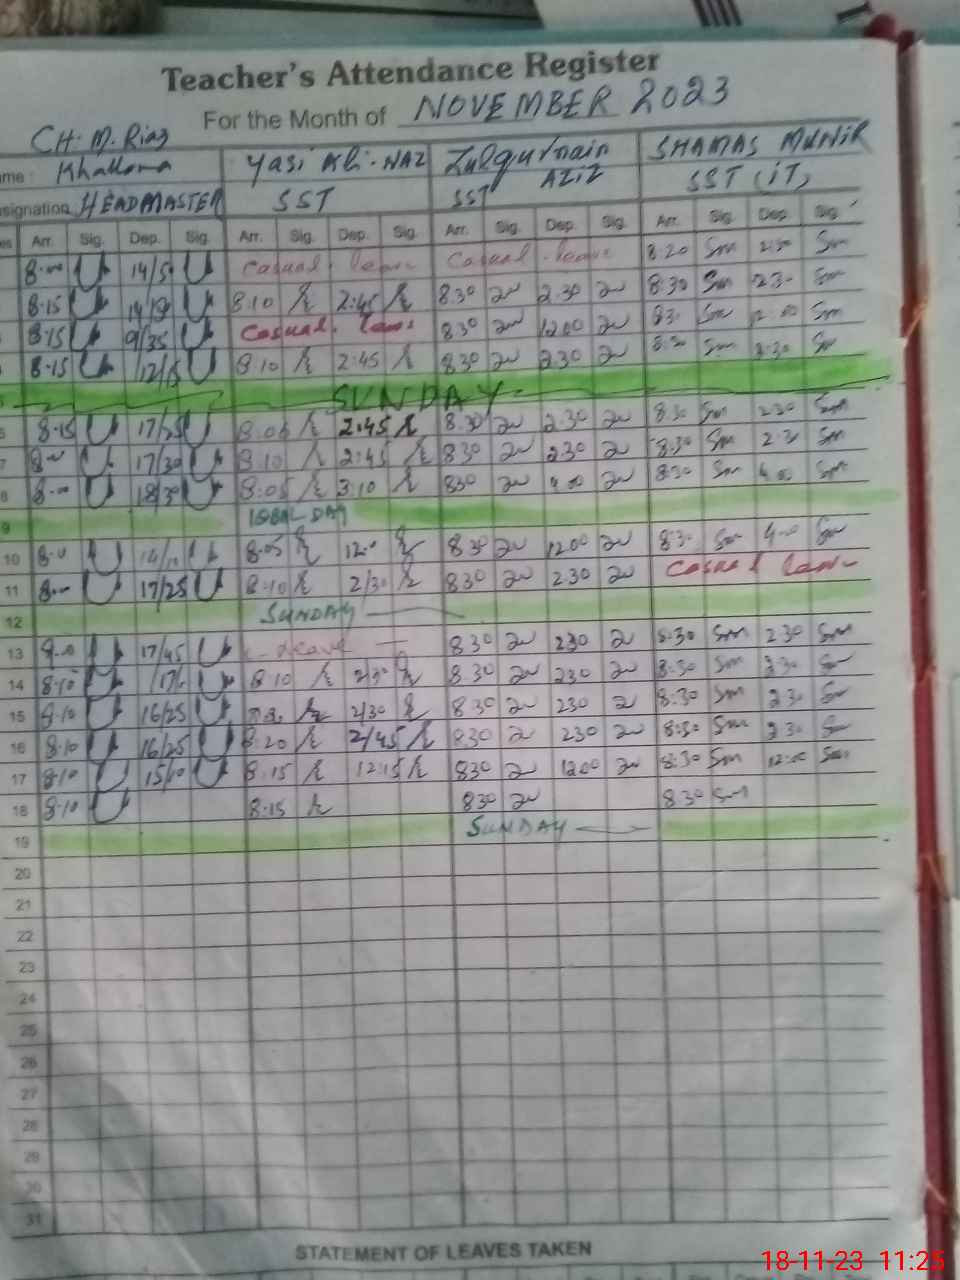 Teacher's Attendance Register
For the Month of NOVEMBER 2023
CH. M. Riaz
ame: Yasi Ali-NAZ Zulqurnain AZIZ SHAMAS MUNIR
signation HEADMASTER SST SST SST (iT)
es Arr. Sig. Dep. Sig. Arr. Sig. Dep. Sig. Arr. Sig. Dep. Sig. Arr. Sig. Dep. Sig.
8.00 14/5 Casual. leave Casual. leave 8.20 Sm 2.30 Sm
8.15 8.10 2:45 8.30 2.30 8.30 Sm 2.30 Sm
8.15 9/35 Casual. 8.30 12.00 Sm Sm
8.15 12/15 8.10 2:45 8.30 2.30 Sm Sm
SUNDAY
6 8.15 17/25 8.05 2.45 8.30 2.30 8.30 Sm 2.30 Sm
7 17/30 8.10 2:45 8.30 2.30 8.30 Sm 2.30 Sm
8 8.00 18/30 8:05 3.10 830 4.00 8.30 Sm 4.00 Sm
9 IQBAL DAY
10 8.05 8.30 1200 8.30 Sm 4.00 Sm
11 17/25 8.10 2/30 830 2.30 Casual
12 SUNDAY
13 17/45 leave 8.30 230 8.30 Sm 2.30 Sm
14 8.10 8.10 2/30 8.30 230 8.30 Sm 2.30 Sm
15 8.10 16/25 2/30 8.30 230 8.30 Sm 2.30 Sm
16 8.10 16/25 8.20 2/45 830 230 8.30 Sm 2.30 Sm
17 8.10 15/10 8.15 12:15 830 1200 8.30 Sm 12.00 Sm
18 8.10 8.15 830 830 Sm
19 SUNDAY
20
21
22
23
24
25
26
27
28
29
30
31
STATEMENT OF LEAVES TAKEN
18-11-23 11:25